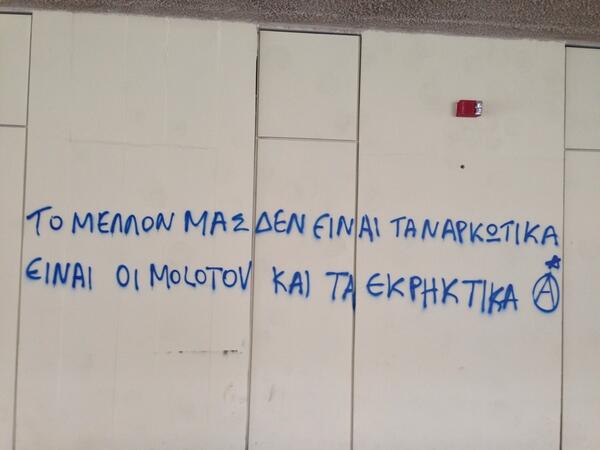 ΤΟ ΜΕΛΛΟΝ ΜΑΣ ΔΕΝ ΕΙΝΑΙ ΤΑ ΝΑΡΚΩΤΙΚΑ
ΕΙΝΑΙ ΟΙ MOLOTOV ΚΑΙ ΤΑ ΕΚΡΗΚΤΙΚΑ Ⓐ